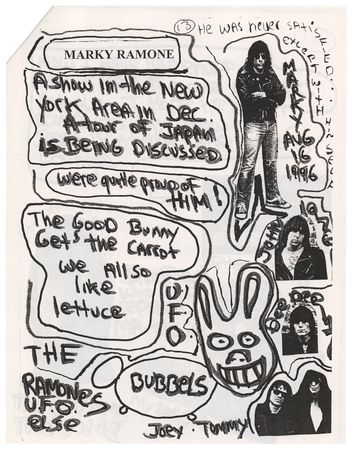 1-3 HE WAS NEVER SATISFIED..
EXCEPT WITH
MARKY RAMONE
A SHOW IM-THE NEW
YORK AREA IN DEC.
A TOUR OF JAPAN
IS BEING DISCUSSED.
MARKY
AUG
16
1996
were quite proud of
HIM!
The Good Bunny
Gets the carrot
we Allso
like
lettuce
U
F
O
THE
RAMONES
U.F.O.
else
BUBBELS
Joey
Tommy
Dee Dee